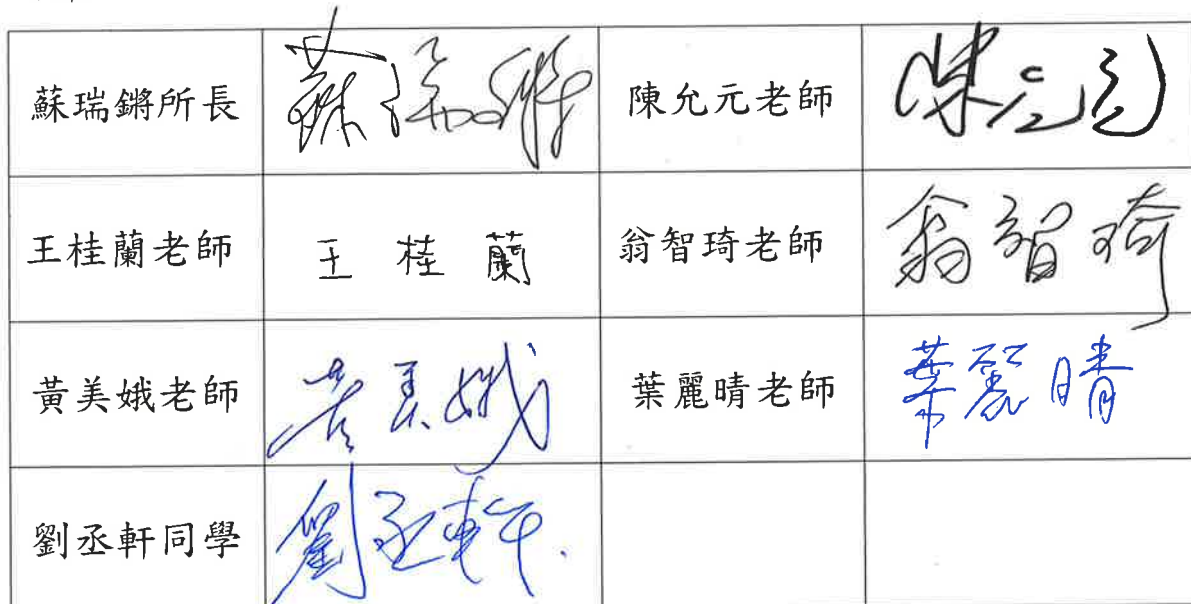 蘇瑞鏘所長 蘇瑞鏘 陳允元老師 陳允元
王桂蘭老師 王桂蘭 翁智琦老師 翁智琦
黃美娥老師 黃美娥 葉麗晴老師 葉麗晴
劉丞軒同學 劉丞軒